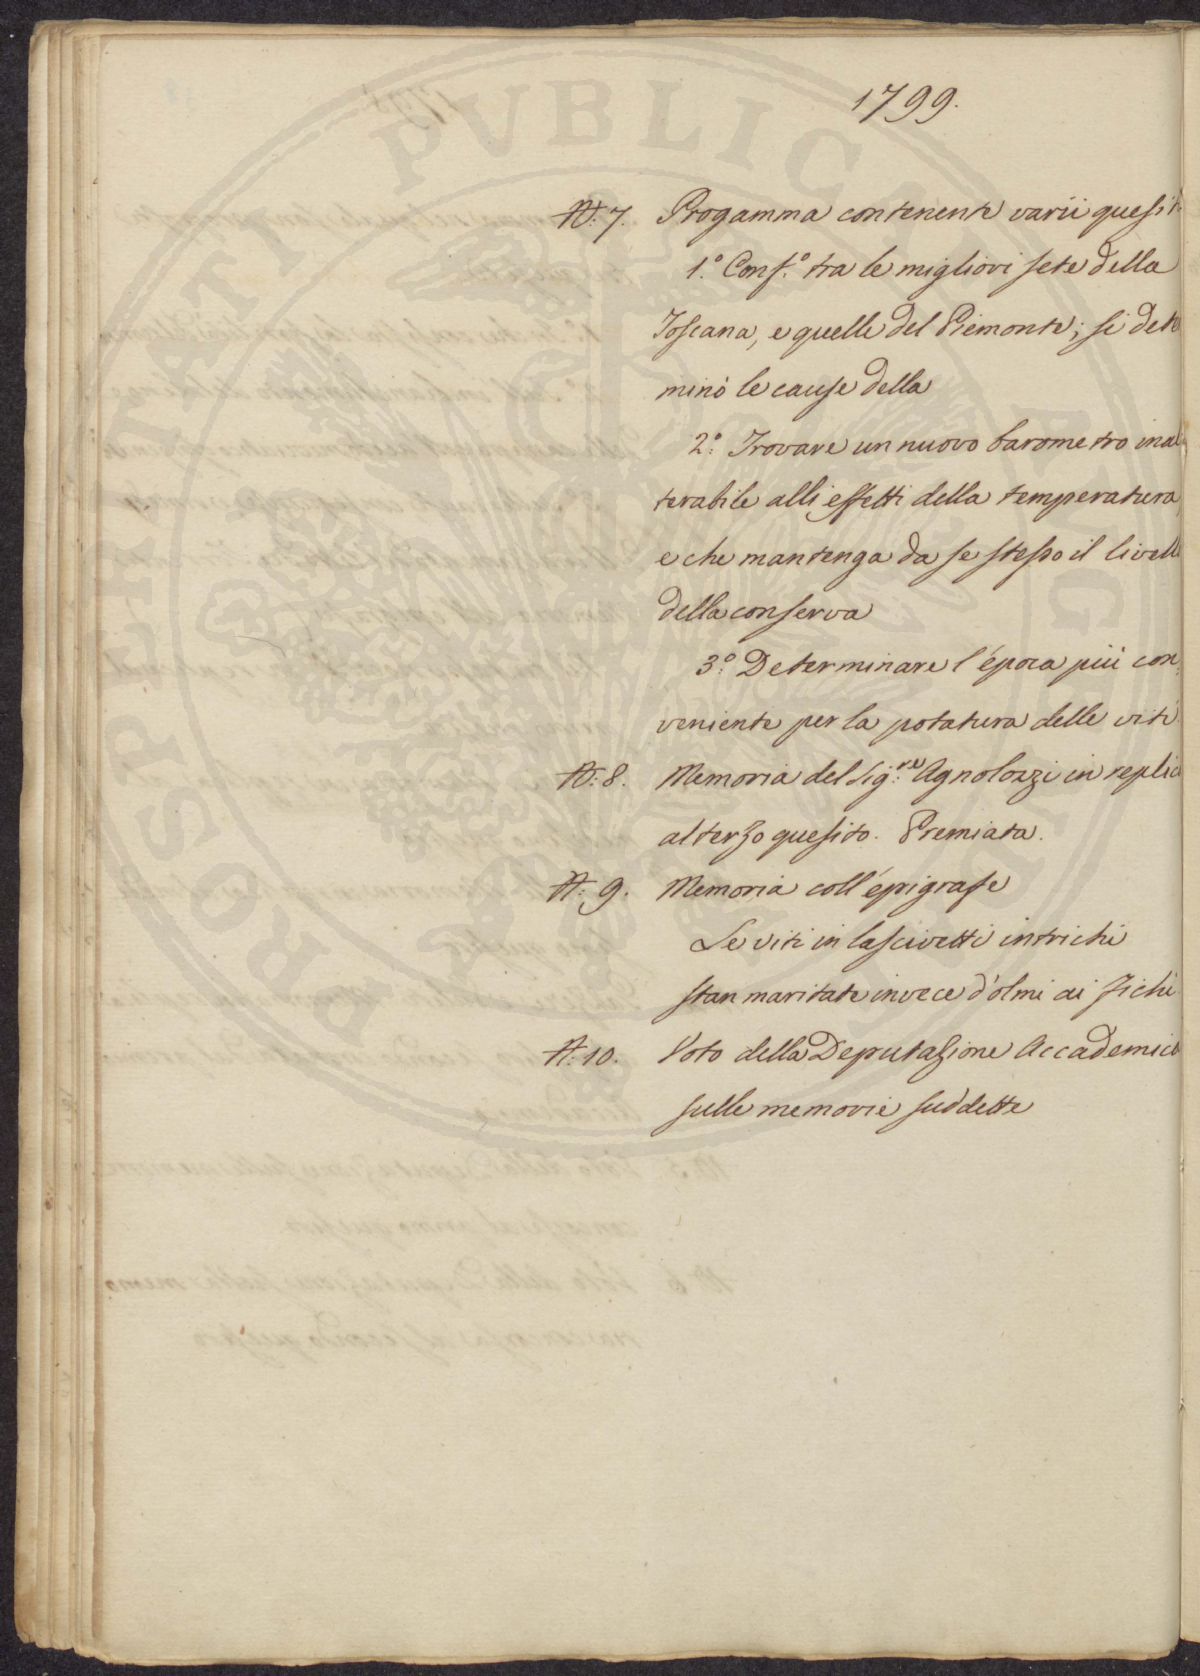 1799.
N: 7. Progamma contenente varii quesiti
1.º Conf.º tra le migliori sete della
Toscana, e quelle del Piemonte; si dete
minò le cause della
2.º Trovare un nuovo barometro inal
terabile alli effetti della temperatura
e che mantenga da se stesso il livell
della conserva
3.º Determinare l'época più con,
veniente per la potatura delle viti
N: 8. Memoria del Sig.re Agnolozzi in replica
al terzo quesito. Premiata.
N: 9. Memoria coll'épigrafe
Le viti in lascivetti intrichi
stan maritate invece d'olmi ai fichi
N: 10. Voto della Deputazione Accademica
sulle memorie suddette
PUBLICAE
PROSPERITATI